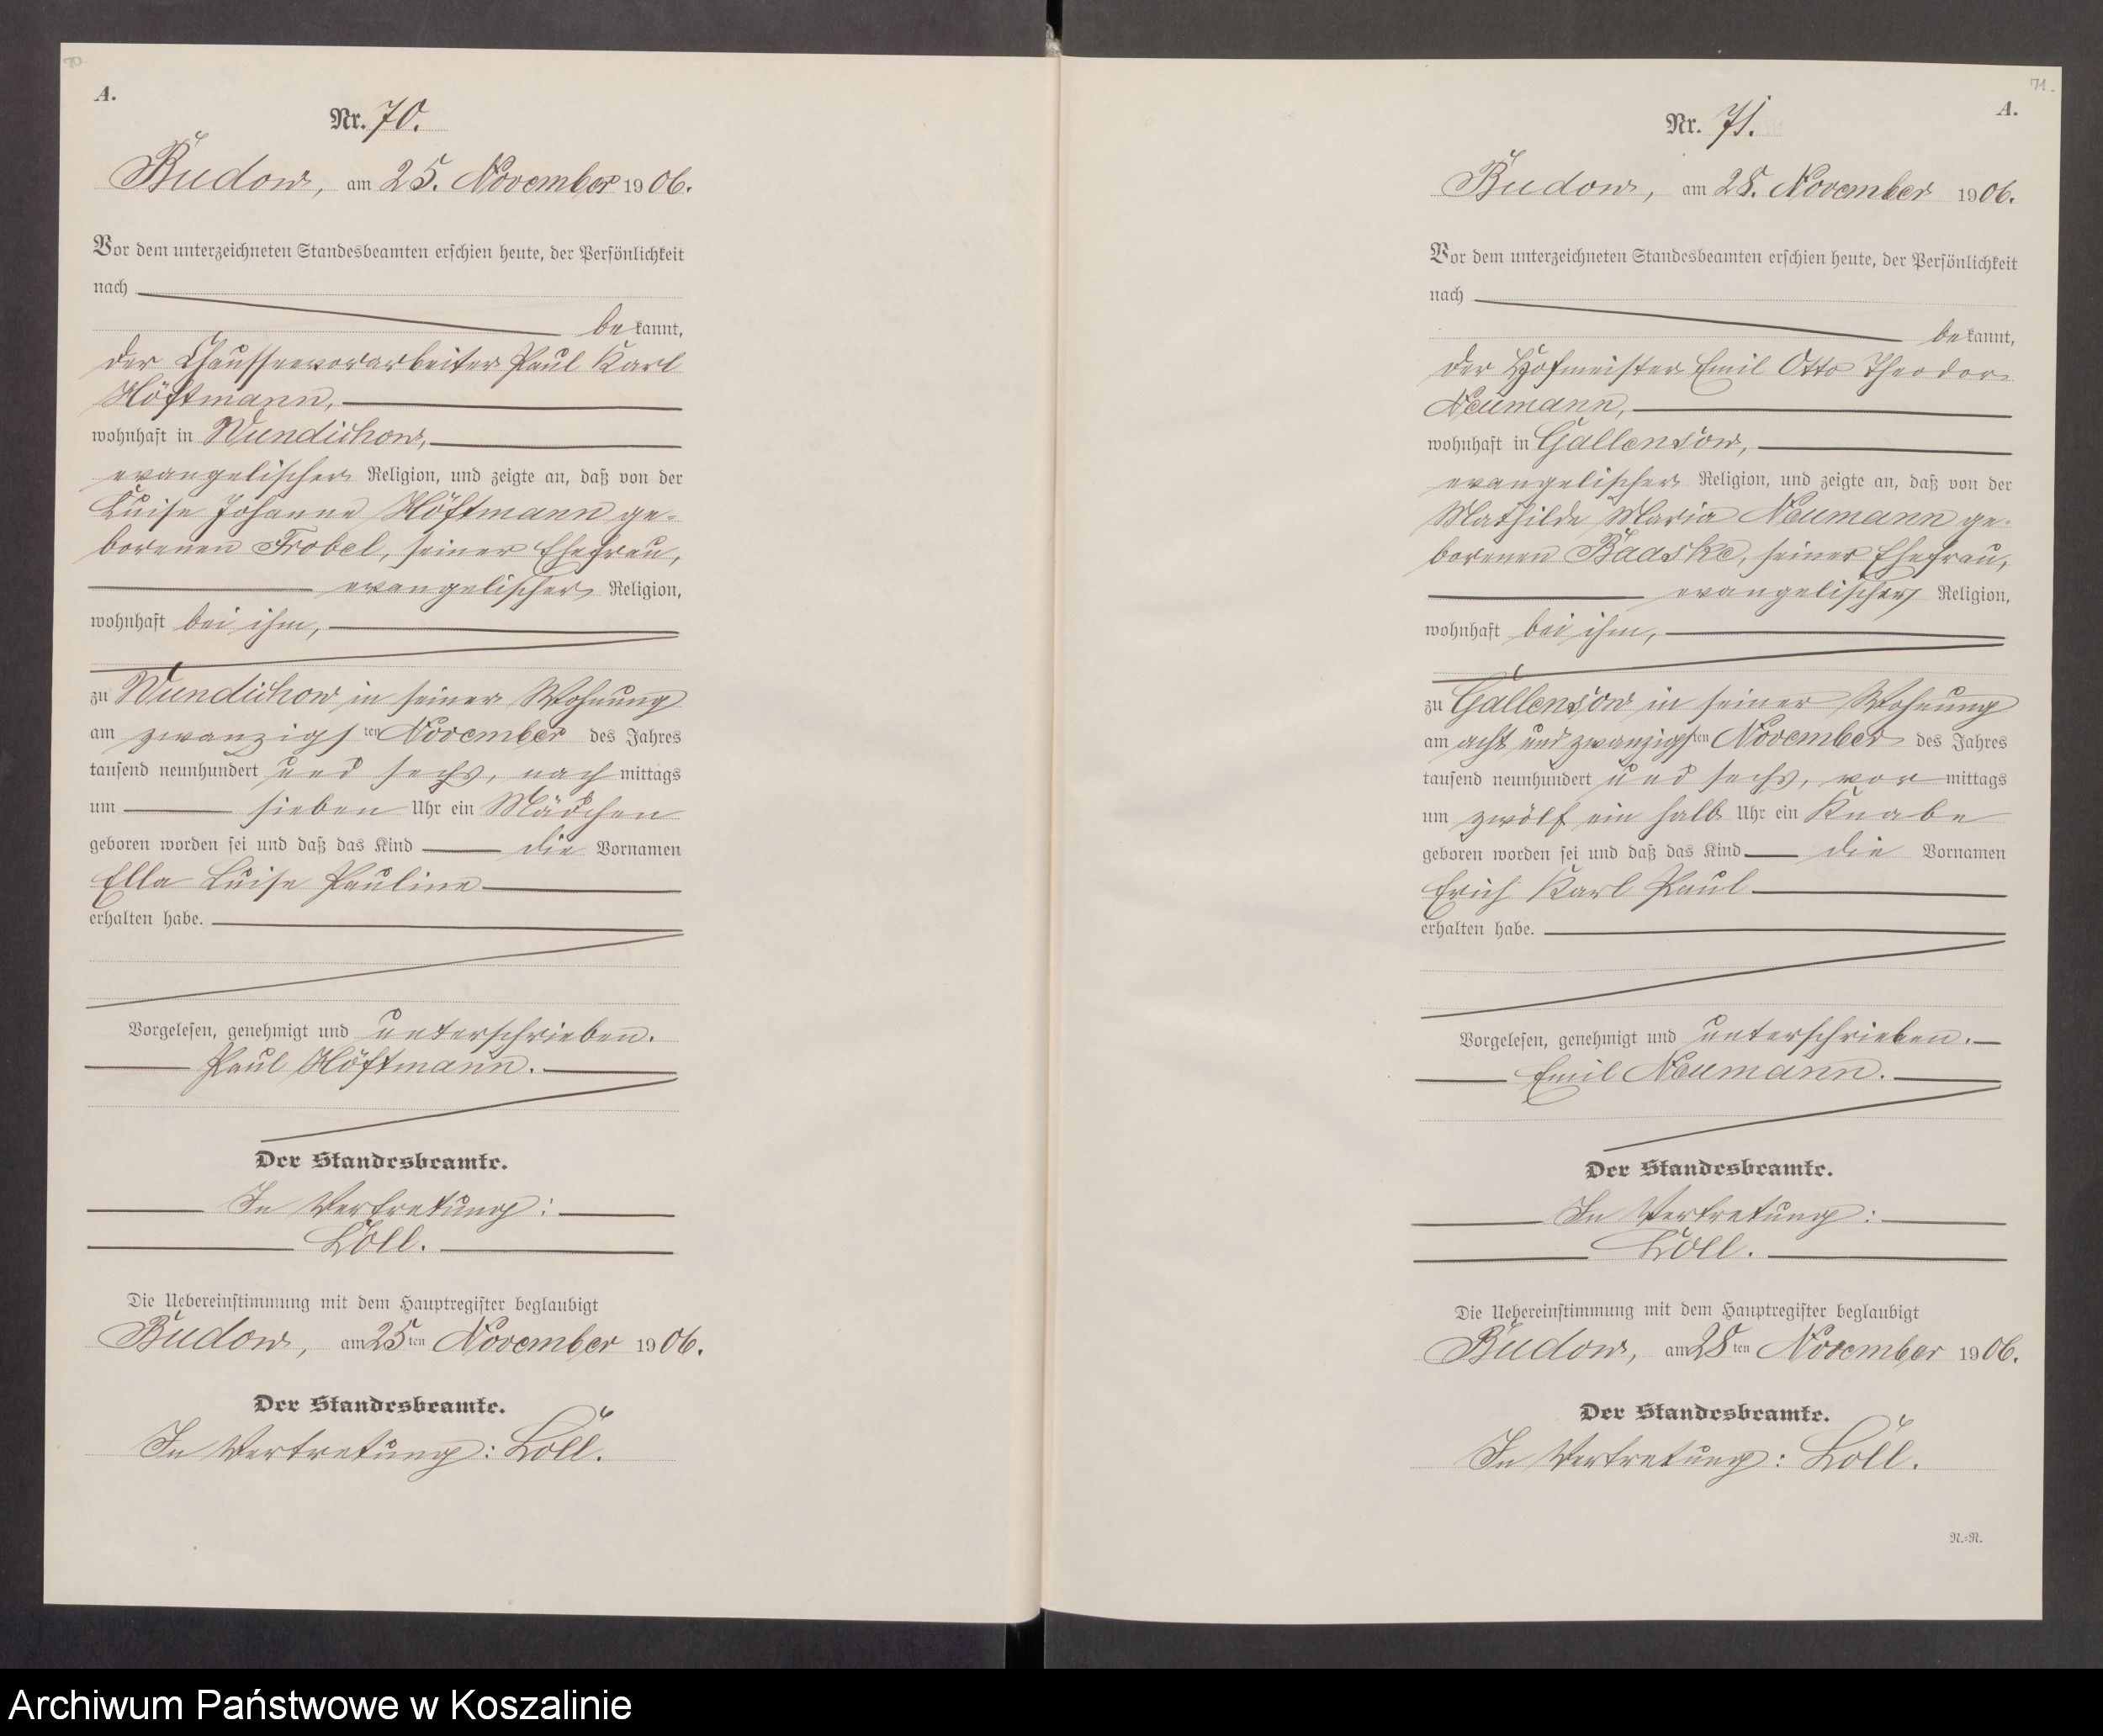 70
A.
Nr. 70.
Budow, am 25. November 1906.
Vor dem unterzeichneten Standesbeamten erschien heute, der Persönlichkeit
nach
bekannt,
der Chausseevorarbeiter Paul Karl
Höftmann,
wohnhaft in Wundichow,
evangelischer Religion, und zeigte an, daß von der
Luise Johanne Höftmann ge-
borenen Frobel, seiner Ehefrau,
evangelischer Religion,
wohnhaft bei ihm,
zu Wundichow in seiner Wohnung
am zwanzigsten November des Jahres
tausend neunhundert und sechs, nachmittags
um sieben Uhr ein Mädchen
geboren worden sei und daß das Kind die Vornamen
Ella Luise Pauline
erhalten habe.
Vorgelesen, genehmigt und unterschrieben.
Paul Höftmann.
Der Standesbeamte.
In Vertretung:
Löll.
Die Uebereinstimmung mit dem Hauptregister beglaubigt
Budow, am 25ten November 1906.
Der Standesbeamte.
In Vertretung: Löll.
71.
A.
Nr. 71.
Budow, am 28. November 1906.
Vor dem unterzeichneten Standesbeamten erschien heute, der Persönlichkeit
nach
bekannt,
der Hofmeister Emil Otto Theodor
Neumann,
wohnhaft in Gallensow,
evangelischer Religion, und zeigte an, daß von der
Mathilde Maria Neumann ge-
borenen Baaske, seiner Ehefrau,
evangelischer Religion,
wohnhaft bei ihm,
zu Gallensow in seiner Wohnung
am acht und zwanzigsten November des Jahres
tausend neunhundert und sechs, vormittags
um zwölf ein halb Uhr ein Knabe
geboren worden sei und daß das Kind die Vornamen
Erich Karl Paul
erhalten habe.
Vorgelesen, genehmigt und unterschrieben.
Emil Neumann.
Der Standesbeamte.
In Vertretung:
Löll.
Die Uebereinstimmung mit dem Hauptregister beglaubigt
Budow, am 28ten November 1906.
Der Standesbeamte.
In Vertretung: Löll.
N.=N.
Archiwum Państwowe w Koszalinie